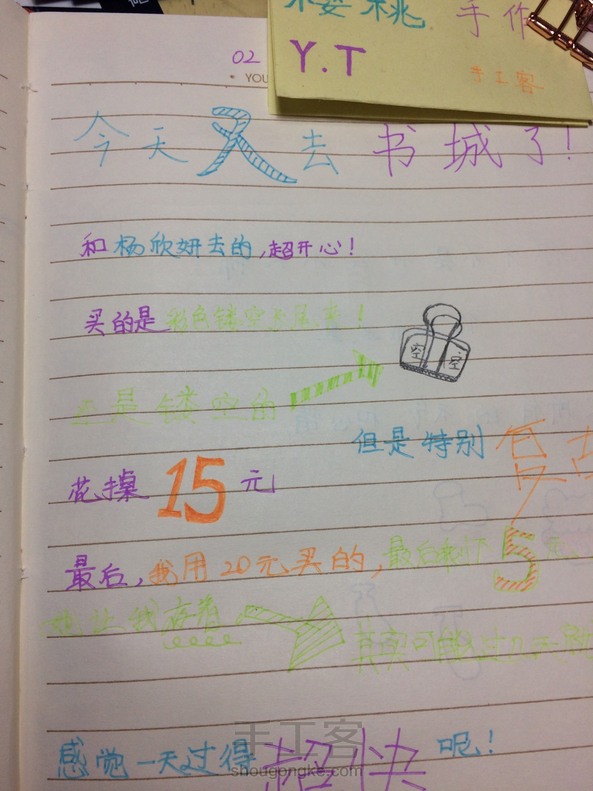 樱桃 手作
Y.T 手工客
02
YOU
今天又去书城了!
和杨欣妍去的,超开心!
买的是彩色镂空长尾夹!
空 空
正是镂空的
但是特别
花掉15元
最后,我用20元买的,最后剩下5元
她让我存着
其实可能过几天
感觉一天过得超快呢!
手工客
shougongke.com